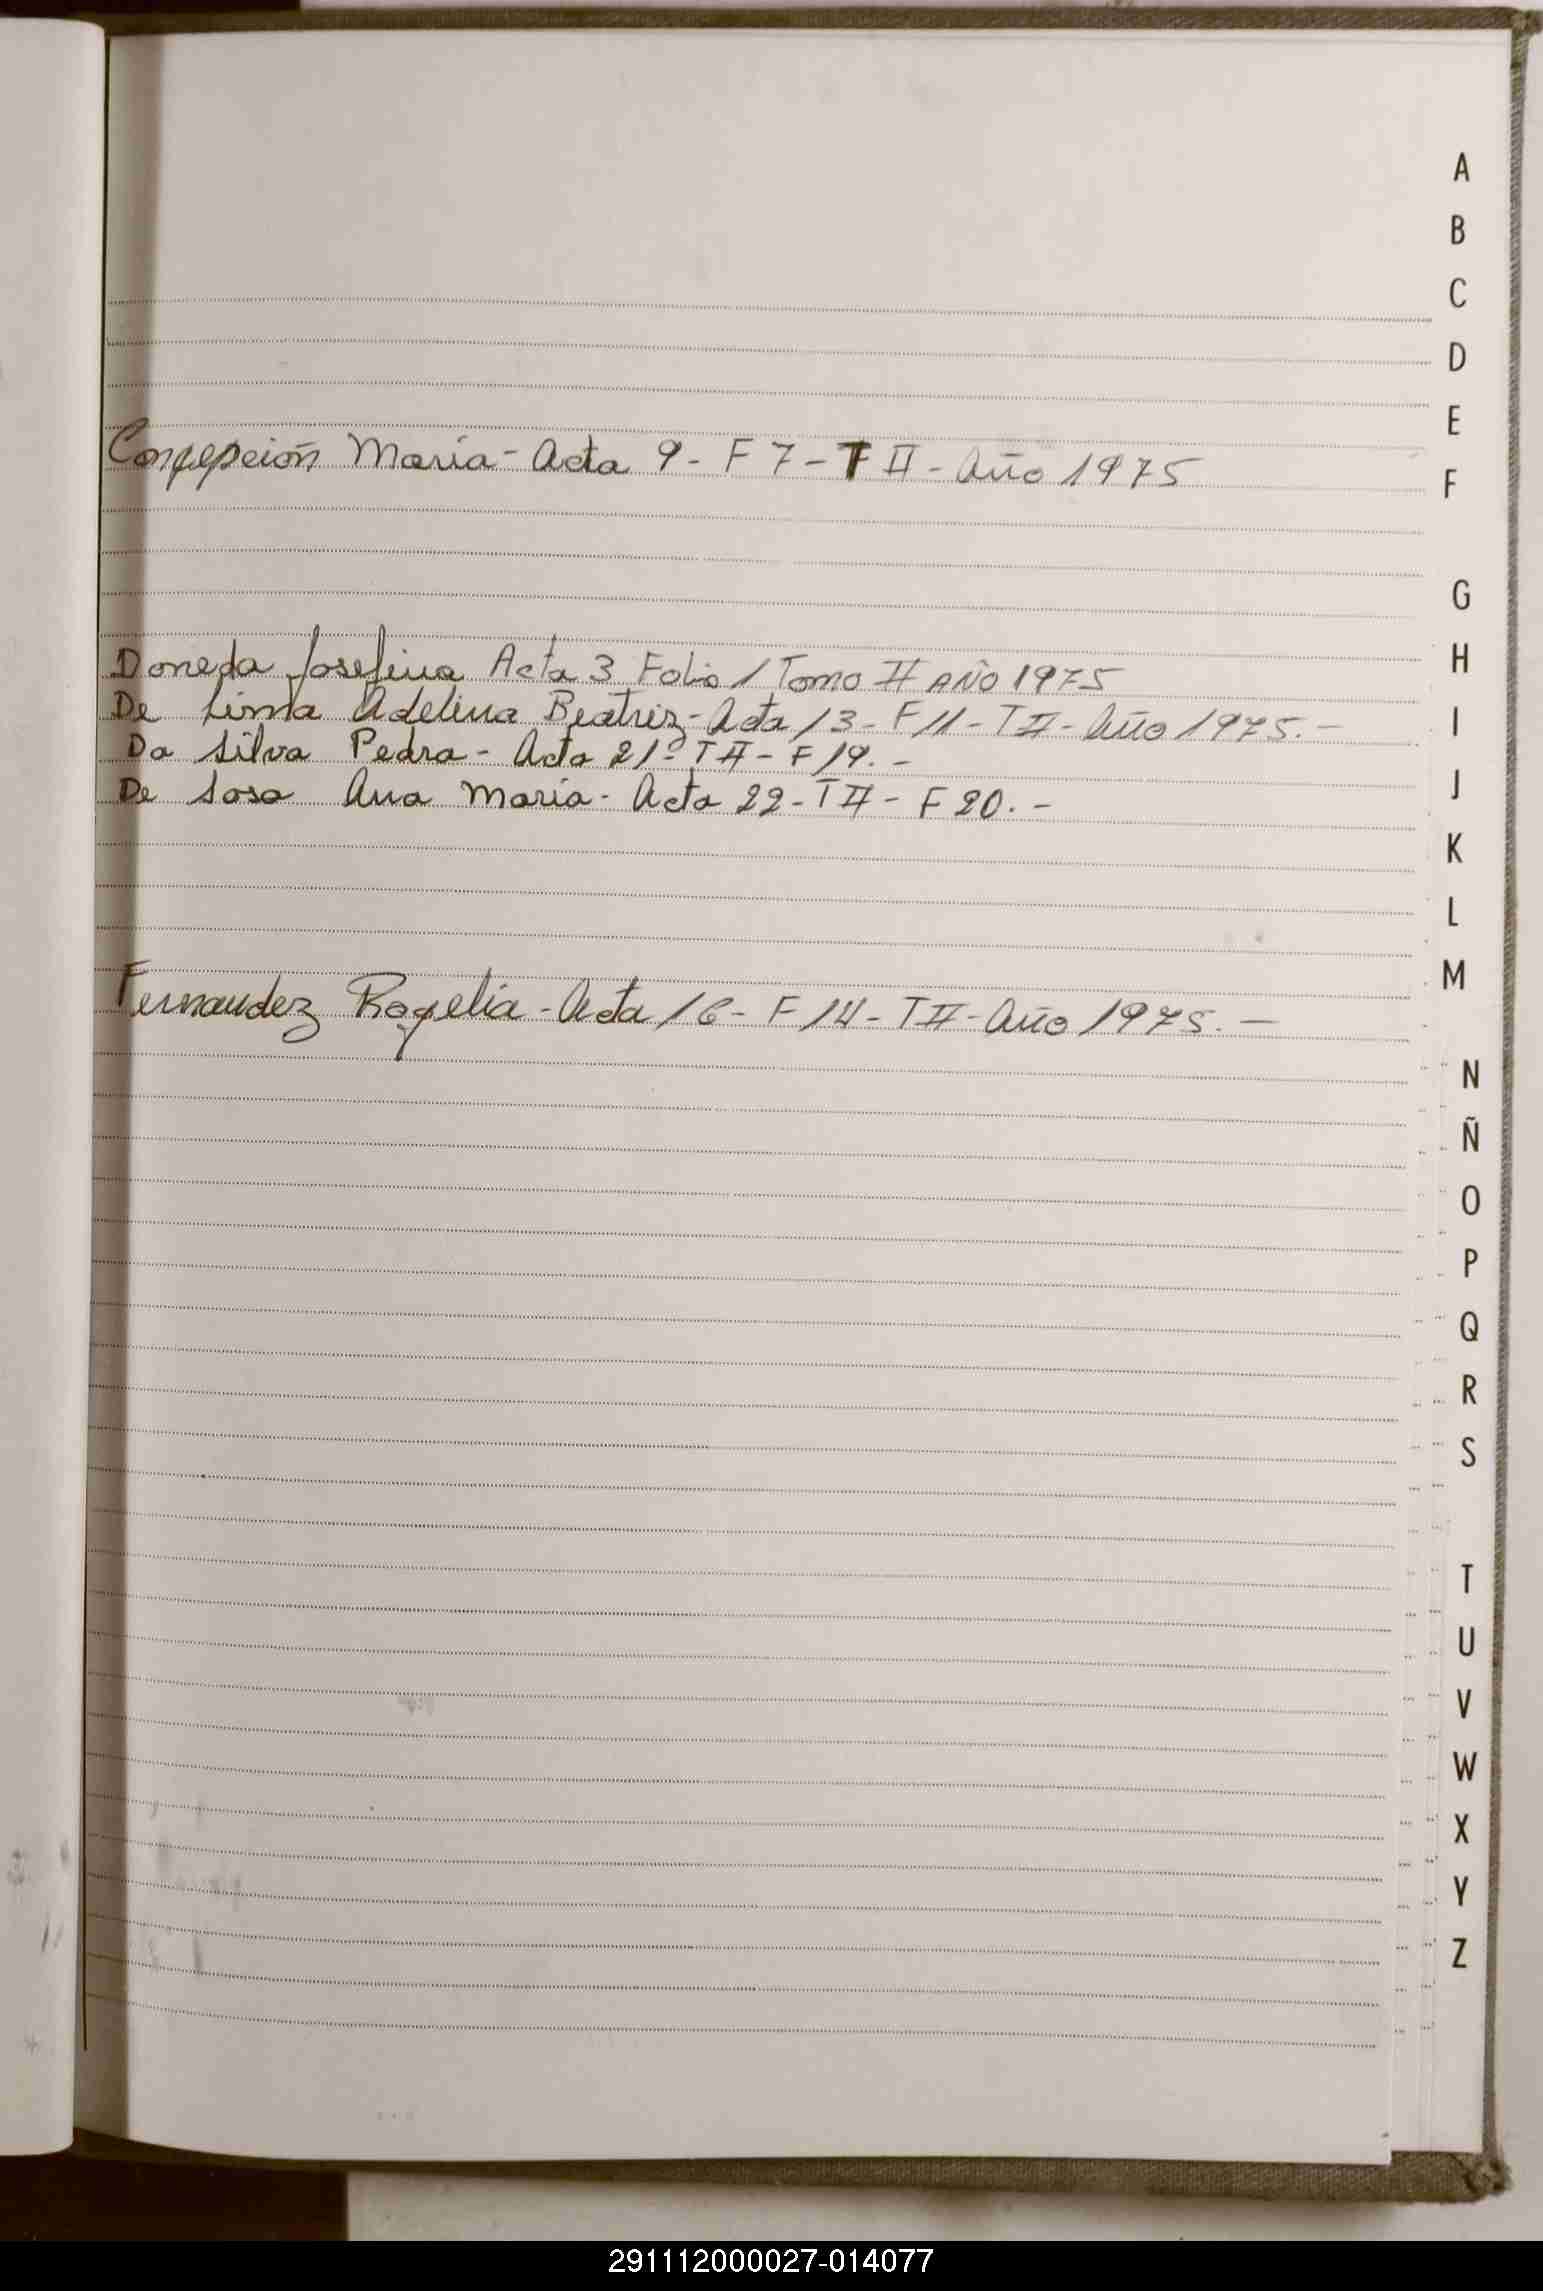 Concepción María - Acta 9 - F 7 - T II - Año 1975
Doneda Josefina Acta 3 Folio 1 Tomo II AÑO 1975
De Lima Adelina Beatriz - Acta 13 - F 11 - T II - Año 1975. -
Da Silva Pedra - Acta 21 - T II - F 19. -
De Sosa Ana María - Acta 22 - T II - F 20. -
Fernandez Rogelia - Acta 16 - F 14 - T II - Año 1975. -
A
B
C
D
E
F
G
H
I
J
K
L
M
N
Ñ
O
P
Q
R
S
T
U
V
W
X
Y
Z
291112000027-014077